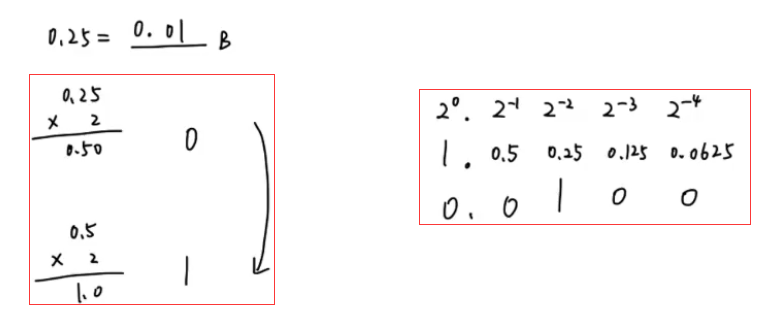 0.25 = 0.01 B
0.25
× 2
0.50 0
0.5
× 2
1.0 1
2⁰. 2⁻¹ 2⁻² 2⁻³ 2⁻⁴
1. 0.5 0.25 0.125 0.0625
0. 0 1 0 0